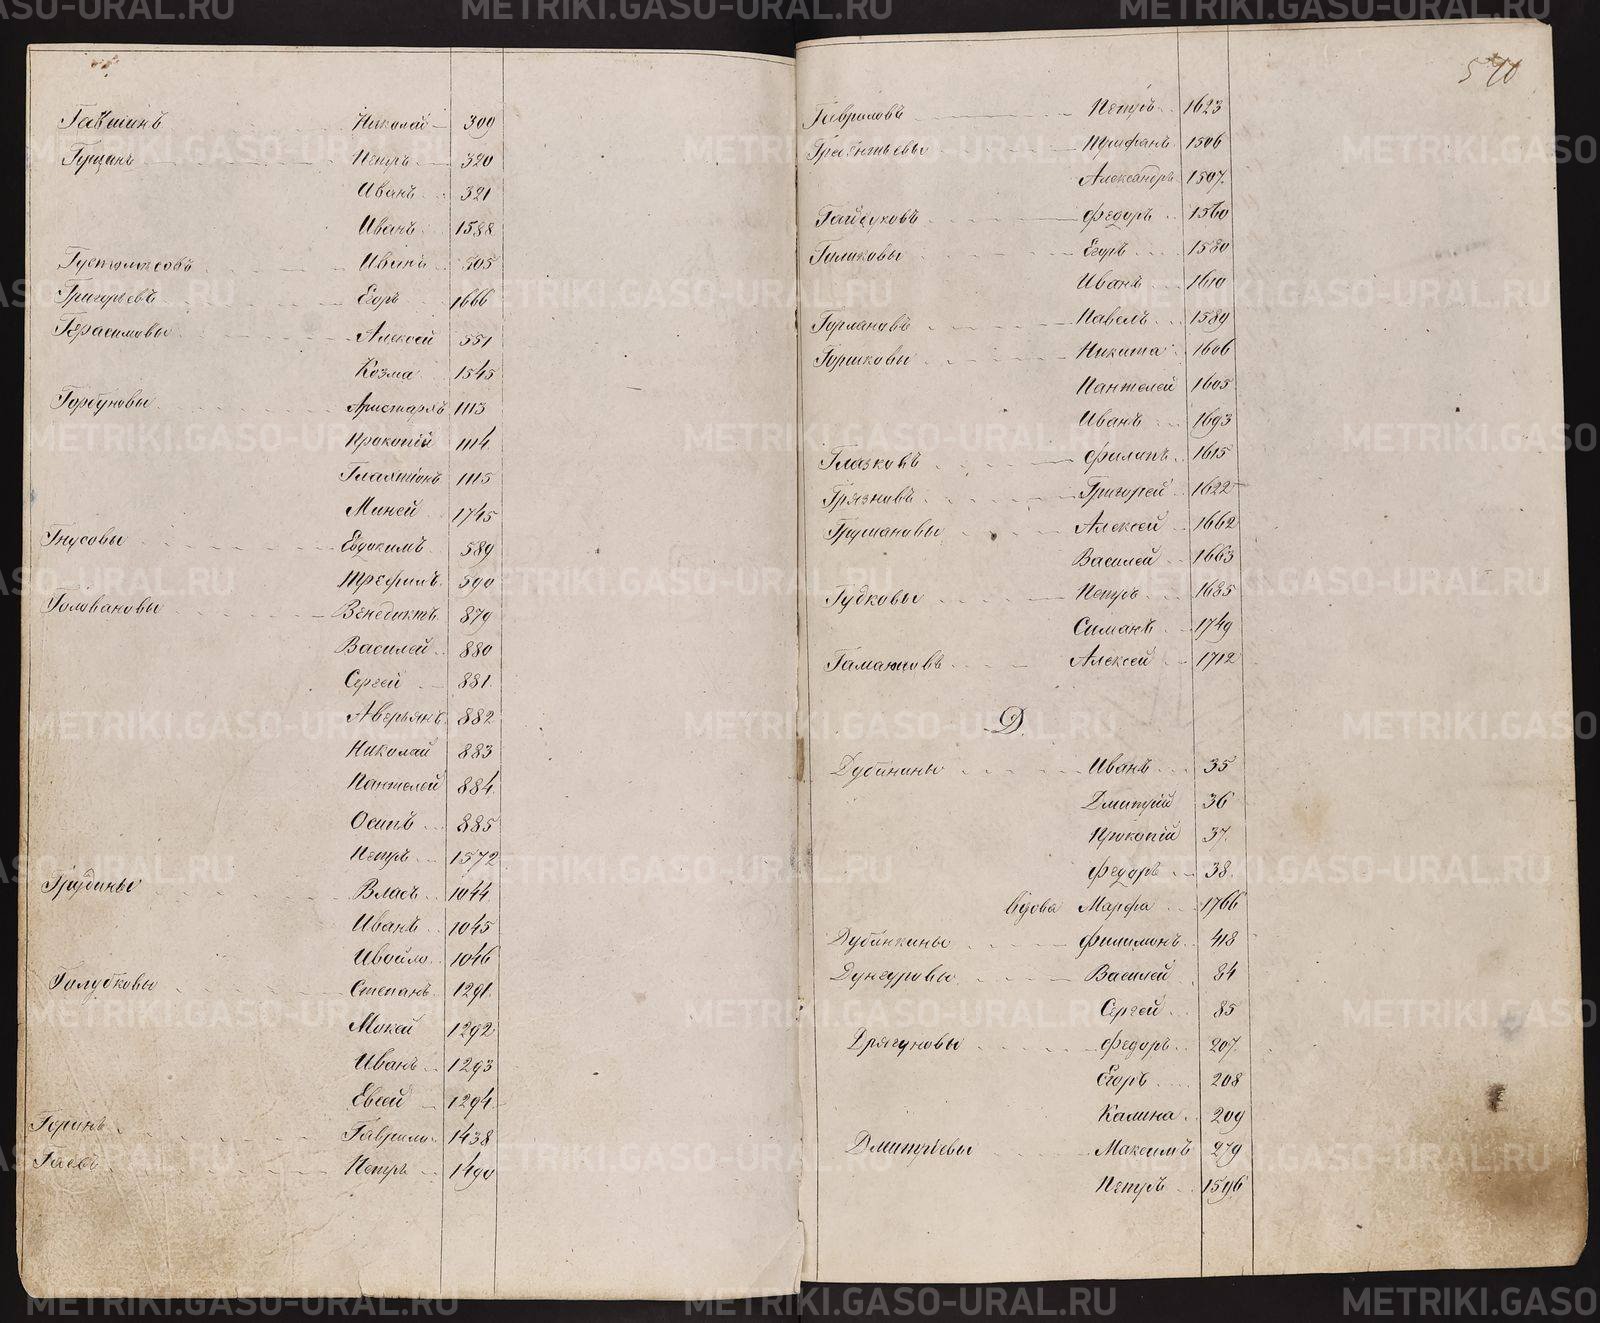 Гавшинъ Николай 309
Гущинъ Петръ 320
Иванъ 321
Иванъ 1588
Иванъ 505
Григорьевъ Егоръ 1666
Герасимовы Алексей 551
Козма 1545
Горбуновы Аристархъ 1113
Прокопій 1114
Галактіонъ 1115
Миней 1745
Гнусовы Евдокимъ 589
Трефилъ 590
Головановы Венедиктъ 879
Василей 880
Сергей 881
Аверьянъ 882
Николай 883
Пантелей 884
Осипъ 885
Петръ 1572
Грудины Власъ 1044
Иванъ 1045
Ивойло 1046
Голубковы Степанъ 1291
Мокей 1292
Иванъ 1293
Евсей 1294
Горинъ Гаврило 1438
Гаевъ Петръ 1490
510
Гавриловъ Петръ 1623
Терентьевы 1506
Александръ 1507
Гайдуковъ Федоръ 1560
Голиковы Егоръ 1580
Иванъ 1610
Горлановъ Павелъ 1589
Горшковы Никита 1606
Пантелей 1605
Иванъ 1693
Глазковъ Филипъ 1615
Грязновъ Григорей 1622
Грумановы Алексей 1662
Василей 1663
Гудковы Петръ 1685
Симанъ 1749
Гамаюновъ Алексей 1712
Д.
Дубинины Иванъ 35
Дмитрій 36
Прокопій 37
Федоръ 38
вдова Марфа 1766
Дубинкины Филимонъ 418
Дунгуровы Василей 84
Сергей 85
Дрягуновы Федоръ 207
Егоръ 208
Калина 209
Дмитріевы Максимъ 279
Петръ 1596
METRIKI.GASO-URAL.RU